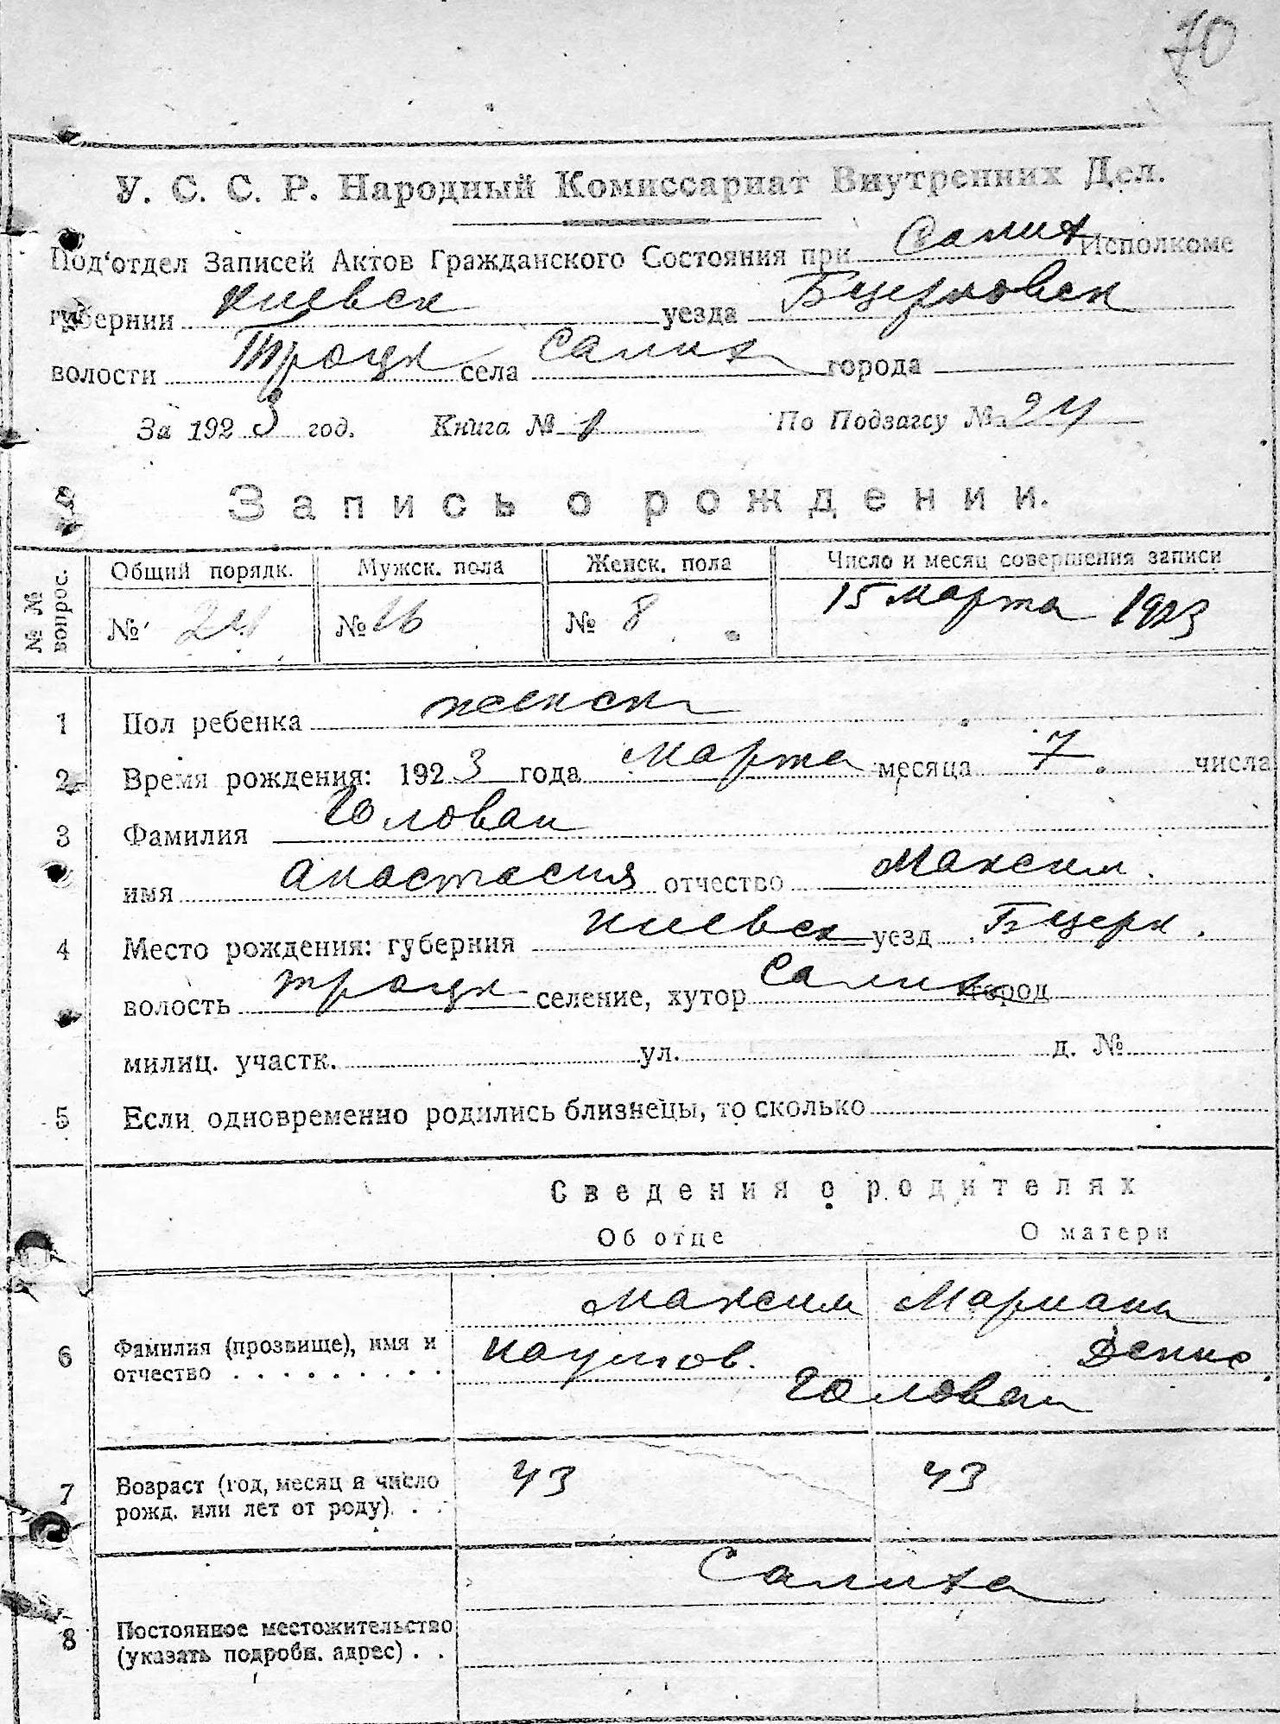 70
У. С. С. Р. Народный Комиссариат Внутренних Дел.
Под'отдел Записей Актов Гражданского Состояния при Салих Исполкоме
губернии Киевск уезда Бцерковск
волости Троцк села Салиха города
За 1923 год. Книга № 1 По Подзагсу № 24
Запись о рождении.
№ № вопрос. Общий порядк. Мужск. пола Женск. пола Число и месяц совершения записи
№ 24 № 16 № 8 15 марта 1923
1 Пол ребенка женск
2 Время рождения: 1923 года Марта месяца 7 числа
3 Фамилия Голован
имя Анастасия отчество Максим.
4 Место рождения: губерния Киевск уезд Бцерк.
волость Троцк селение, хутор Салиха город
милиц. участк. ул. д. №
5 Если одновременно родились близнецы, то сколько
Сведения о родителях
Об отце О матери
Максим Мариана
6 Фамилия (прозвище), имя и отчество Наумов. Денис.
Голован
7 Возраст (год, месяц и число рожд. или лет от роду) 43 43
Салиха
8 Постоянное местожительство
(указать подробн. адрес)